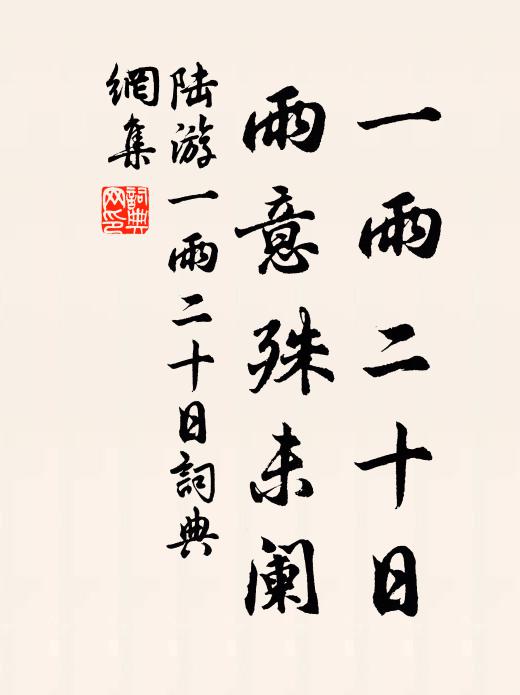 一雨二十日
雨意殊未阑
陆游一雨二十日詞典
網集
詞典网印